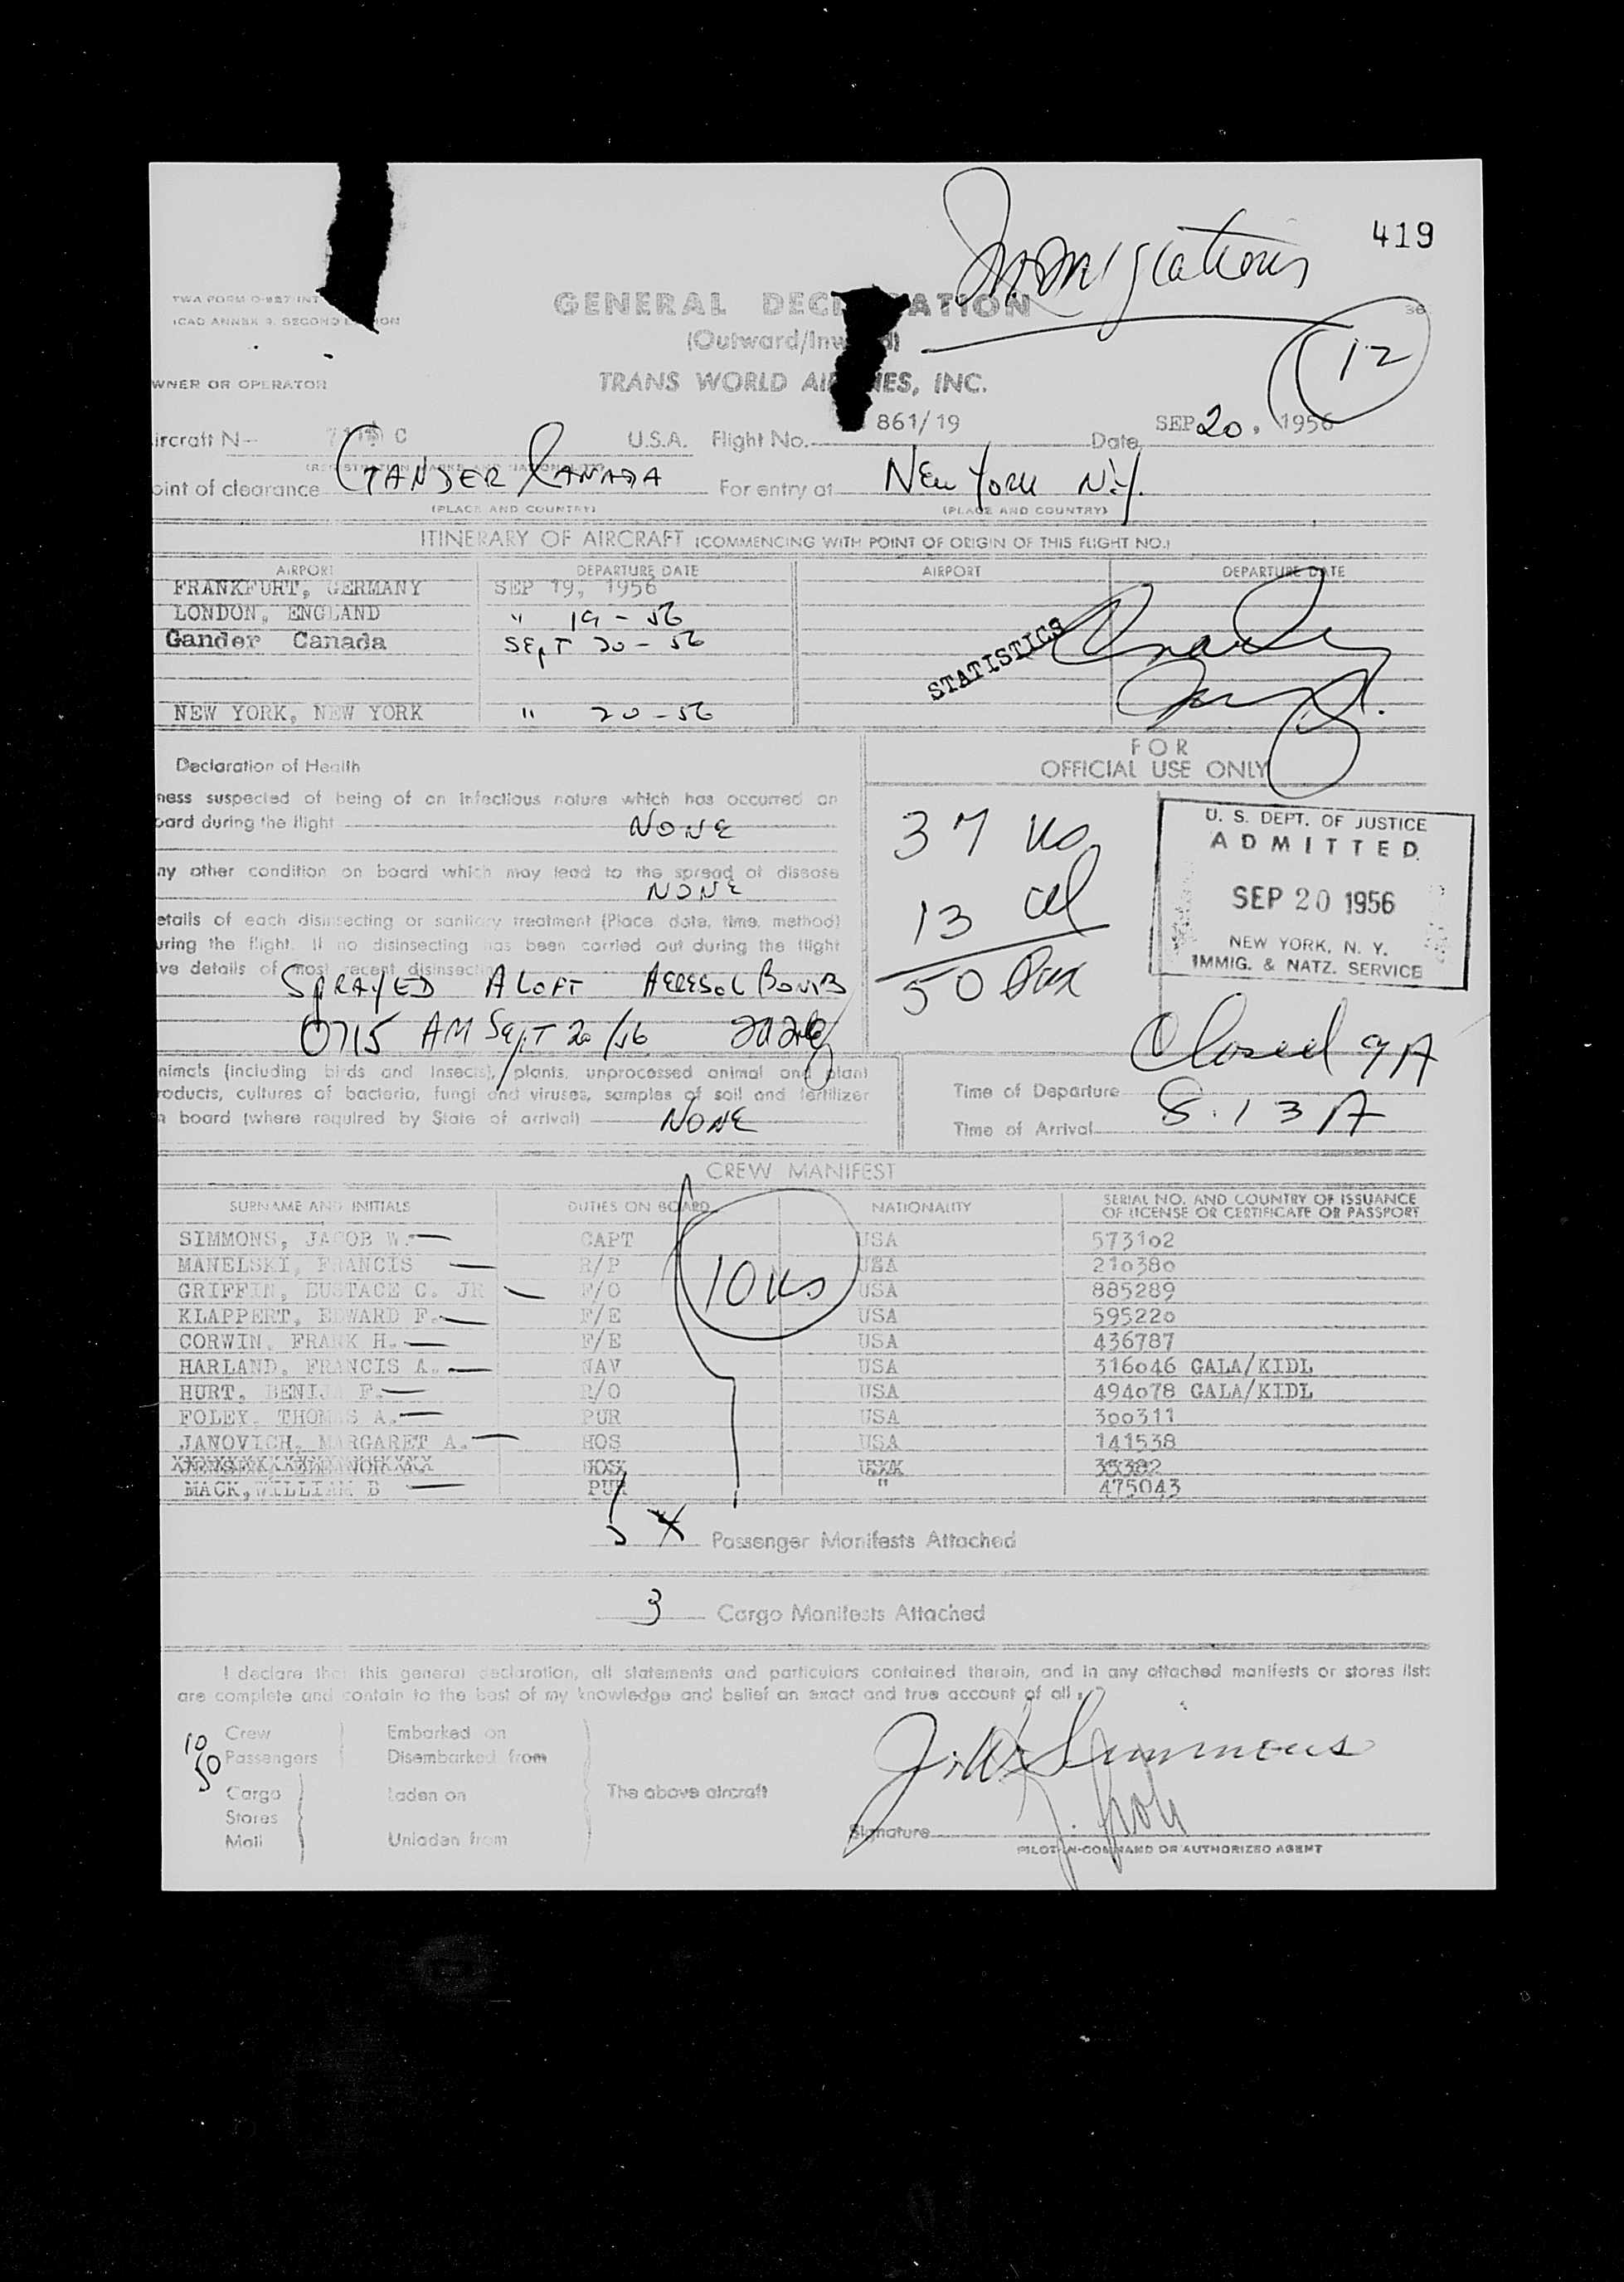 419
Immigrations
TWA FORM O-987 INT
ICAO ANNEX 9, SECOND EDITION
GENERAL DECLARATION
36
12
(Outward/Inward)
WNER OR OPERATOR
TRANS WORLD AIRLINES, INC.
ircraft N- C U.S.A. Flight No. 861/19 Date SEP 20, 1956
(REGISTRATION MARKS AND NATIONALITY)
oint of clearance GANDER CANADA For entry at NEW YORK N.Y.
(PLACE AND COUNTRY) (PLACE AND COUNTRY)
ITINERARY OF AIRCRAFT (COMMENCING WITH POINT OF ORIGIN OF THIS FLIGHT NO.)
AIRPORT DEPARTURE DATE AIRPORT DEPARTURE DATE
FRANKFURT, GERMANY SEP 19, 1956
LONDON, ENGLAND " 19-56
Gander Canada SEPT 20-56
STATISTICS
NEW YORK, NEW YORK " 20-56
Declaration of Health
FOR
OFFICIAL USE ONLY
ness suspected of being of an infectious nature which has occurred on
oard during the flight NONE
ny other condition on board which may lead to the spread of disease
NONE
etails of each disinsecting or sanitary treatment (Place, date, time, method)
uring the flight. If no disinsecting has been carried out during the flight
ive details of most recent disinsecting
SPRAYED ALOFT AERESOL BOMB
0715 AM SEPT 20/56
37 US
13 al
50 Pax
U. S. DEPT. OF JUSTICE
ADMITTED
SEP 20 1956
NEW YORK, N. Y.
IMMIG. & NATZ. SERVICE
Closed 9A
nimals (including birds and insects), plants, unprocessed animal and plant
roducts, cultures of bacteria, fungi and viruses, samples of soil and fertilizer
n board (where required by State of arrival) NONE
Time of Departure
Time of Arrival 8.13A
CREW MANIFEST
SURNAME AND INITIALS DUTIES ON BOARD NATIONALITY SERIAL NO. AND COUNTRY OF ISSUANCE
OF LICENSE OR CERTIFICATE OR PASSPORT
SIMMONS, JACOB W. CAPT USA 573102
MANELSKI, FRANCIS R/P USA 210380
GRIFFIN, EUSTACE C. JR F/O USA 885289
10 US
KLAPPERT, EDWARD F. F/E USA 595220
CORWIN, FRANK H. F/E USA 436787
HARLAND, FRANCIS A. NAV USA 316046 GALA/KIDL
HURT, BENIJ. F. R/O USA 494078 GALA/KIDL
FOLEY, THOMAS A. PUR USA 300311
JANOVICH, MARGARET A. HOS USA 141538
MACK, WILLIAM B PUR " 475043
5 Passenger Manifests Attached
3 Cargo Manifests Attached
I declare that this general declaration, all statements and particulars contained therein, and in any attached manifests or stores list:
are complete and contain to the best of my knowledge and belief an exact and true account of all
10 Crew Embarked on
50 Passengers Disembarked from
Cargo Laden on The above aircraft
Stores
Mail Unladen from
J. W. Simmons
Signature
PILOT-IN-COMMAND OR AUTHORIZED AGENT